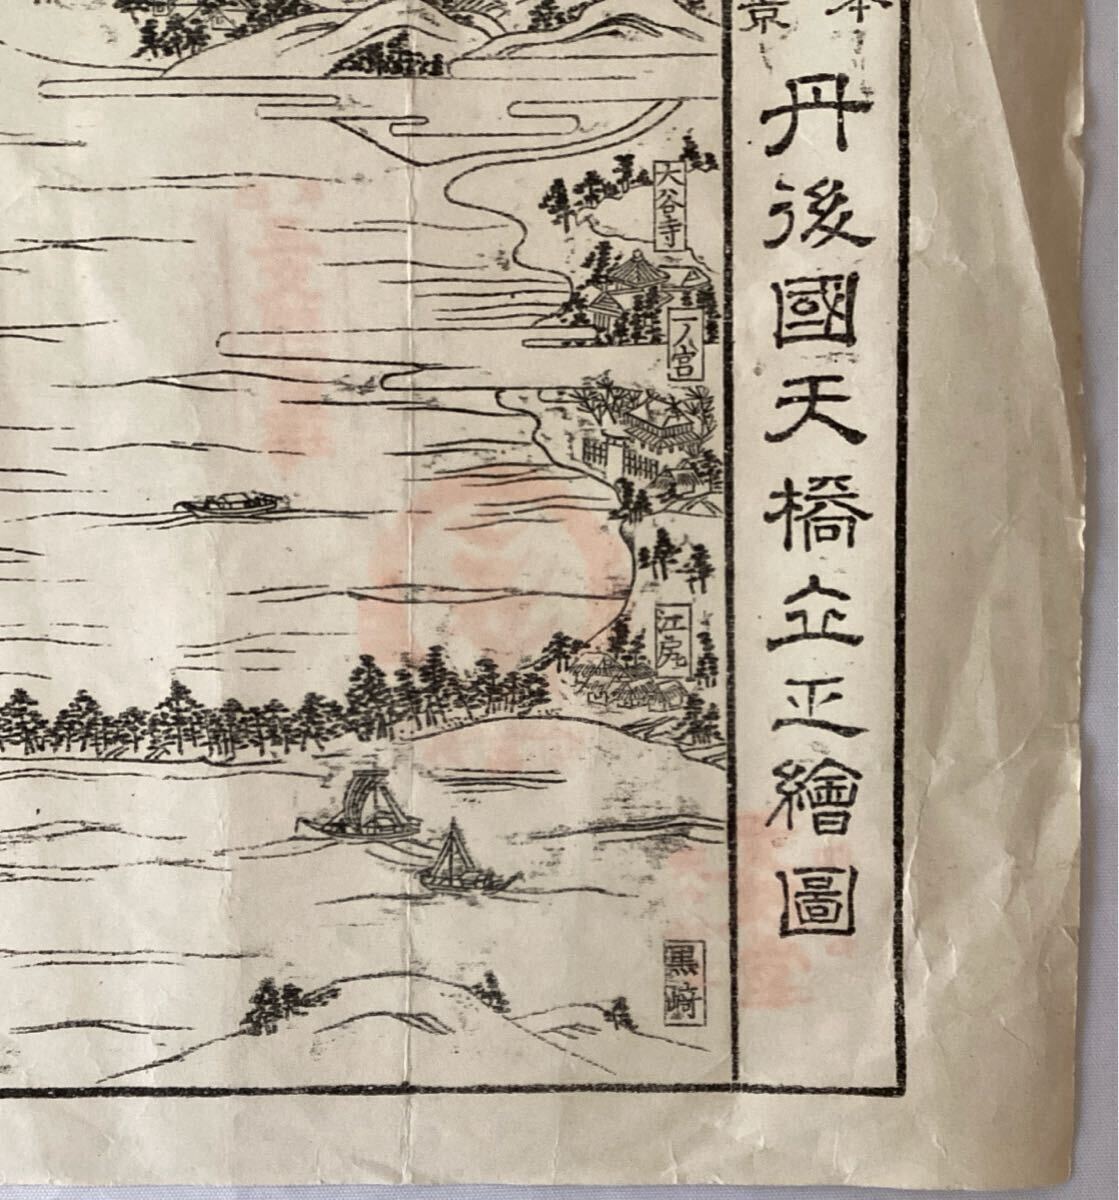 本
景
丹後國天橋立正繪圖
大谷寺
一ノ宮
江尻
黒﨑